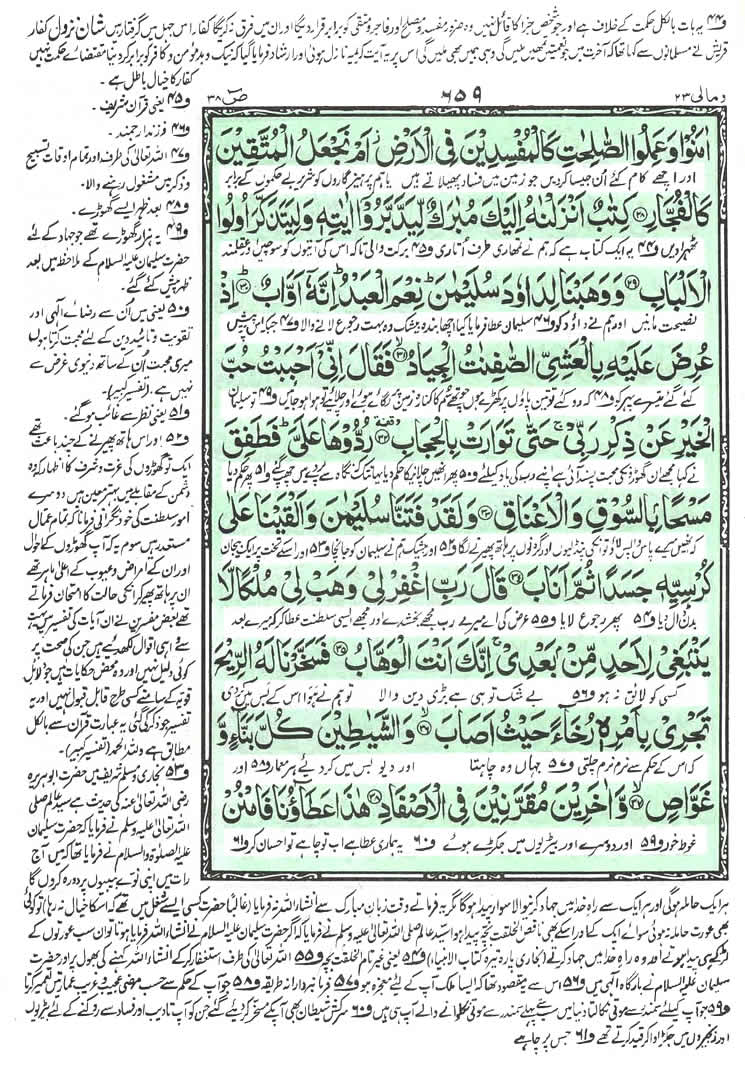 و۴۴ یہ بات بالکل حکمت کے خلاف ہے اور جو شخص جزا کا قائل نہیں وہ ضرور مفسد و مصلح اور فاجر و متقی کو برابر قرار دیگا اور ان میں فرق نہ کریگا کفار اس جہل میں گرفتار ہیں شان نزول کفار
قریش نے مسلمانوں سے کہا تھا کہ آخرت میں جو نعمتیں تمہیں ملیں گی وہی ہمیں بھی ملیں گی اس پر یہ آیت کریمہ نازل ہوئی اور ارشاد فرمایا گیا کہ نیک و بد مومن و کافر کو برابر کر دینا مقتضائے حکمت نہیں
کفار کا خیال باطل ہے۔
و۴۵ یعنی قرآن شریف۔
و۴۶ فرزند ارجمند۔
و۴۷ اللہ تعالیٰ کی طرف اور تمام اوقات تسبیح
و ذکر میں مشغول رہنے والا۔
و۴۸ بعد ظہر ایسے گھوڑے۔
و۴۹ یہ ہزار گھوڑے تھے جو جہاد کے لئے
حضرت سلیمان علیہ السلام کے ملاحظہ میں بعد
ظہر پیش کئے گئے۔
و۵۰ یعنی میں ان سے رضائے الٰہی اور
تقویت و تائید دین کے لئے محبت کرتا ہوں
میری محبت ان کے ساتھ دنیوی غرض سے
نہیں ہے۔ (تفسیر کبیر)
و۵۱ یعنی نظر سے غائب ہو گئے۔
و۵۲ اور اس ہاتھ پھیرنے کے چند باعث تھے
ایک تو گھوڑوں کی عزت و شرف کا اظہار کہ وہ
دشمن کے مقابلہ میں بہتر معین ہیں دوسرے
امور سلطنت کی خود نگرانی فرمانا کہ تمام عمال
مستعد رہیں سوم یہ کہ آپ گھوڑوں کے احوال
اور ان کے امراض و عیوب کے اعلیٰ ماہر تھے
ان پر ہاتھ پھیر کر ان کی حالت کا امتحان فرماتے
تھے بعض مفسرین نے ان آیات کی تفسیر میں بہت
سے واہی اقوال لکھ دیئے ہیں جن کی صحت پر
کوئی دلیل نہیں اور وہ محض حکایات ہیں جو دلائل
قویہ کے سامنے کسی طرح قابل قبول نہیں اور یہ
تفسیر جو ذکر کی گئی یہ عبارت قرآن سے بالکل
مطابق ہے وللہ الحمد (تفسیر کبیر)
و۵۳ بخاری و مسلم شریف میں حضرت ابو ہریرہ
رضی اللہ تعالیٰ عنہ کی حدیث ہے سید عالم صلی
اللہ تعالیٰ علیہ وسلم نے فرمایا کہ حضرت سلیمان
علیہ الصلوٰۃ والسلام نے فرمایا تھا کہ میں آج
رات میں اپنی نوے بیبیوں پر دورہ کروں گا
ومالی ۲۳
۶۵۹
صٓ ۳۸
اٰمَنُوْا وَعَمِلُوا الصّٰلِحٰتِ كَالْمُفْسِدِیْنَ فِی الْاَرْضِ اَمْ نَجْعَلُ الْمُتَّقِیْنَ
اور اچھے کام کئے ان جیسا کردیں جو زمین میں فساد پھیلاتے ہیں یا ہم پرہیزگاروں کو شریر بے حکموں کے برابر
كَالْفُجَّارِ ﴿۲۸﴾ كِتٰبٌ اَنْزَلْنٰهُ اِلَیْكَ مُبٰرَكٌ لِّیَدَّبَّرُوْۤا اٰیٰتِهٖ وَلِیَتَذَكَّرَ اُولُوا
ٹھہرا دیں و۴۴ یہ ایک کتاب ہے کہ ہم نے تمہاری طرف اتاری و۴۵ برکت والی تاکہ اس کی آیتوں کو سوچیں اور عقلمند
الْاَلْبَابِ ﴿۲۹﴾ وَوَهَبْنَا لِدَاوٗدَ سُلَیْمٰنَ نِعْمَ الْعَبْدُ اِنَّهٗۤ اَوَّابٌ ﴿۳۰﴾ اِذْ
نصیحت مانیں اور ہم نے داؤد کو و۴۶ سلیمان عطا فرمایا کیا اچھا بندہ بیشک وہ بہت رجوع لانے والا و۴۷ جبکہ اس پر پیش
عُرِضَ عَلَیْهِ بِالْعَشِیِّ الصّٰفِنٰتُ الْجِیَادُ ﴿۳۱﴾ فَقَالَ اِنِّیْۤ اَحْبَبْتُ حُبَّ
کئے گئے تیسرے پہر کو و۴۸ کہ روکئے تو تین پاؤں پر کھڑے ہوں چوتھے سم کا کنارہ زمین پر لگائے ہوئے اور چلائیے تو ہوا ہو جائیں و۴۹ تو سلیمان
الْخَیْرِ عَنْ ذِكْرِ رَبِّیْ حَتّٰی تَوَارَتْ بِالْحِجَابِ ﴿۳۲﴾ رُدُّوْهَا عَلَیَّ فَطَفِقَ
نے کہا مجھے ان گھوڑوں کی محبت پسند آئی ہے اپنے رب کی یاد کیلئے و۵۰ پھر انہیں چلانے کا حکم دیا یہاں تک کہ نگاہ سے پردے میں چھپ گئے و۵۱ پھر حکم دیا
مَسْحًۢا بِالسُّوْقِ وَالْاَعْنَاقِ ﴿۳۳﴾ وَلَقَدْ فَتَنَّا سُلَیْمٰنَ وَاَلْقَیْنَا عَلٰی
کہ انہیں میرے پاس واپس لاؤ تو ان کی پنڈلیوں اور گردنوں پر ہاتھ پھیرنے لگا و۵۲ اور بیشک ہم نے سلیمان کو جانچا و۵۳ اور اسکے تخت پر ایک بے جان
كُرْسِیِّهٖ جَسَدًا ثُمَّ اَنَابَ ﴿۳۴﴾ قَالَ رَبِّ اغْفِرْ لِیْ وَهَبْ لِیْ مُلْكًا لَّا
بدن ڈال دیا و۵۴ پھر رجوع لایا و۵۵ عرض کی اے میرے رب مجھے بخشدے اور مجھے ایسی سلطنت عطا کر کہ میرے بعد
یَنْۢبَغِیْ لِاَحَدٍ مِّنْۢ بَعْدِیْ اِنَّكَ اَنْتَ الْوَهَّابُ ﴿۳۵﴾ فَسَخَّرْنَا لَهُ الرِّیْحَ
کسی کو لائق نہ ہو و۵۶ بے شک تو ہی ہے بڑی دین والا تو ہم نے ہوا اس کے بس میں کردی
تَجْرِیْ بِاَمْرِهٖ رُخَآءً حَیْثُ اَصَابَ ﴿۳۶﴾ وَالشَّیٰطِیْنَ كُلَّ بَنَّآءٍ وَّ
کہ اس کے حکم سے نرم نرم چلتی و۵۷ جہاں وہ چاہتا اور دیو بس میں کر دیئے ہر معمار و۵۸ اور
غَوَّاصٍ ﴿۳۷﴾ وَّاٰخَرِیْنَ مُقَرَّنِیْنَ فِی الْاَصْفَادِ ﴿۳۸﴾ هٰذَا عَطَآؤُنَا فَامْنُنْ
غوطہ خور و۵۹ اور دوسرے اور بیڑیوں میں جکڑے ہوئے و۶۰ یہ ہماری عطا ہے اب تو چاہے تو احسان کر و۶۱
ہر ایک حاملہ ہوگی اور ہر ایک سے راہ خدا میں جہاد کرنیوالا سوار پیدا ہوگا مگر یہ فرماتے وقت زبان مبارک سے انشاء اللہ نہ فرمایا (غالباً حضرت کسی ایسے شغل میں تھے کہ اسکا خیال نہ رہا) تو کوئی
بھی عورت حاملہ نہ ہوئی سوائے ایک کے اور اسکے بھی ناقص الخلقت بچہ پیدا ہوا سید عالم صلی اللہ تعالیٰ علیہ وسلم نے فرمایا کہ اگر حضرت سلیمان علیہ السلام نے انشاء اللہ فرمایا ہوتا تو ان سب عورتوں کے
لڑکے ہی پیدا ہوتے اور وہ راہ خدا میں جہاد کرتے (بخاری پارہ تیرہ کتاب الانبیاء) و۵۴ یعنی غیر تام الخلقت بچہ و۵۵ اللہ تعالیٰ کی طرف استغفار کر کے انشاء اللہ کہنے کی بھول پر اور حضرت
سلیمان علیہ السلام نے بارگاہ الٰہی میں و۵۶ اس سے یہ مقصود تھا کہ ایسا ملک آپ کے لئے معجزہ ہو و۵۷ فرمانبردارانہ طریقہ پر و۵۸ جو آپ کے حکم سے حسب مرضی عجیب و غریب عمارتیں تعمیر کرتا
و۵۹ جو آپ کیلئے سمندر سے موتی نکالتا دنیا میں سب سے پہلے سمندر سے موتی نکلوانے والے آپ ہی ہیں و۶۰ سرکش شیطان بھی آپ کے مسخر کر دیئے گئے جن کو آپ تادیب اور فساد سے روکنے کے لئے بیڑیوں
اور زنجیروں میں جکڑوا کر قید کرتے تھے و۶۱ جس پر چاہے